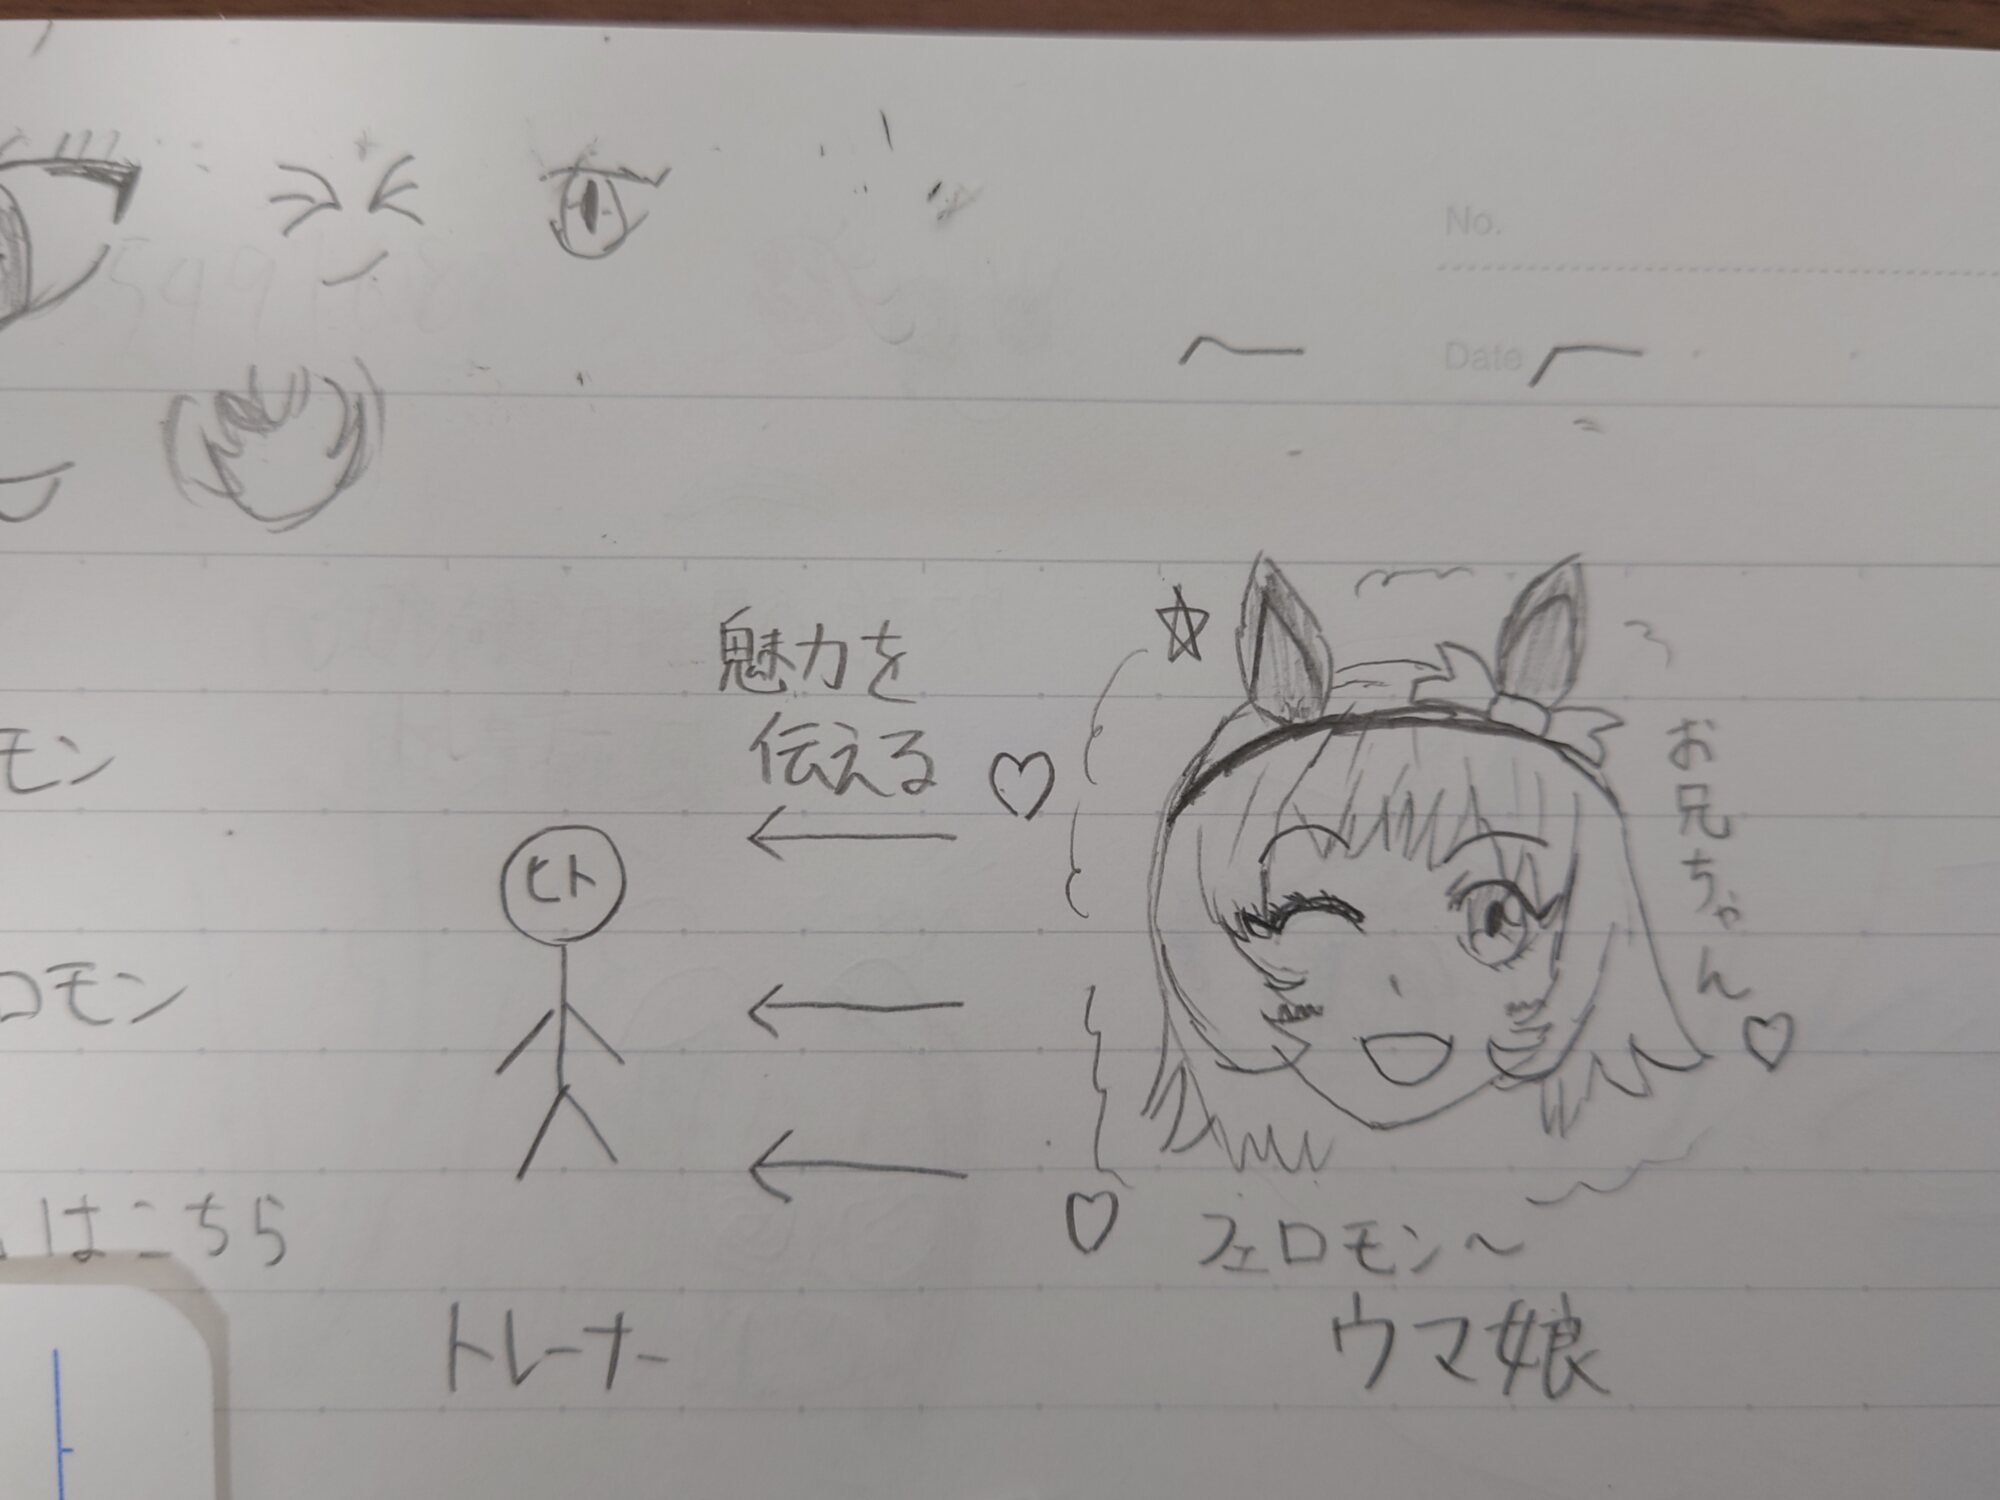 No.
Date
魅力を
伝える
お兄ちゃん♡
モン
ヒト
ロモン
はこちら
フェロモン〜
トレーナー
ウマ娘